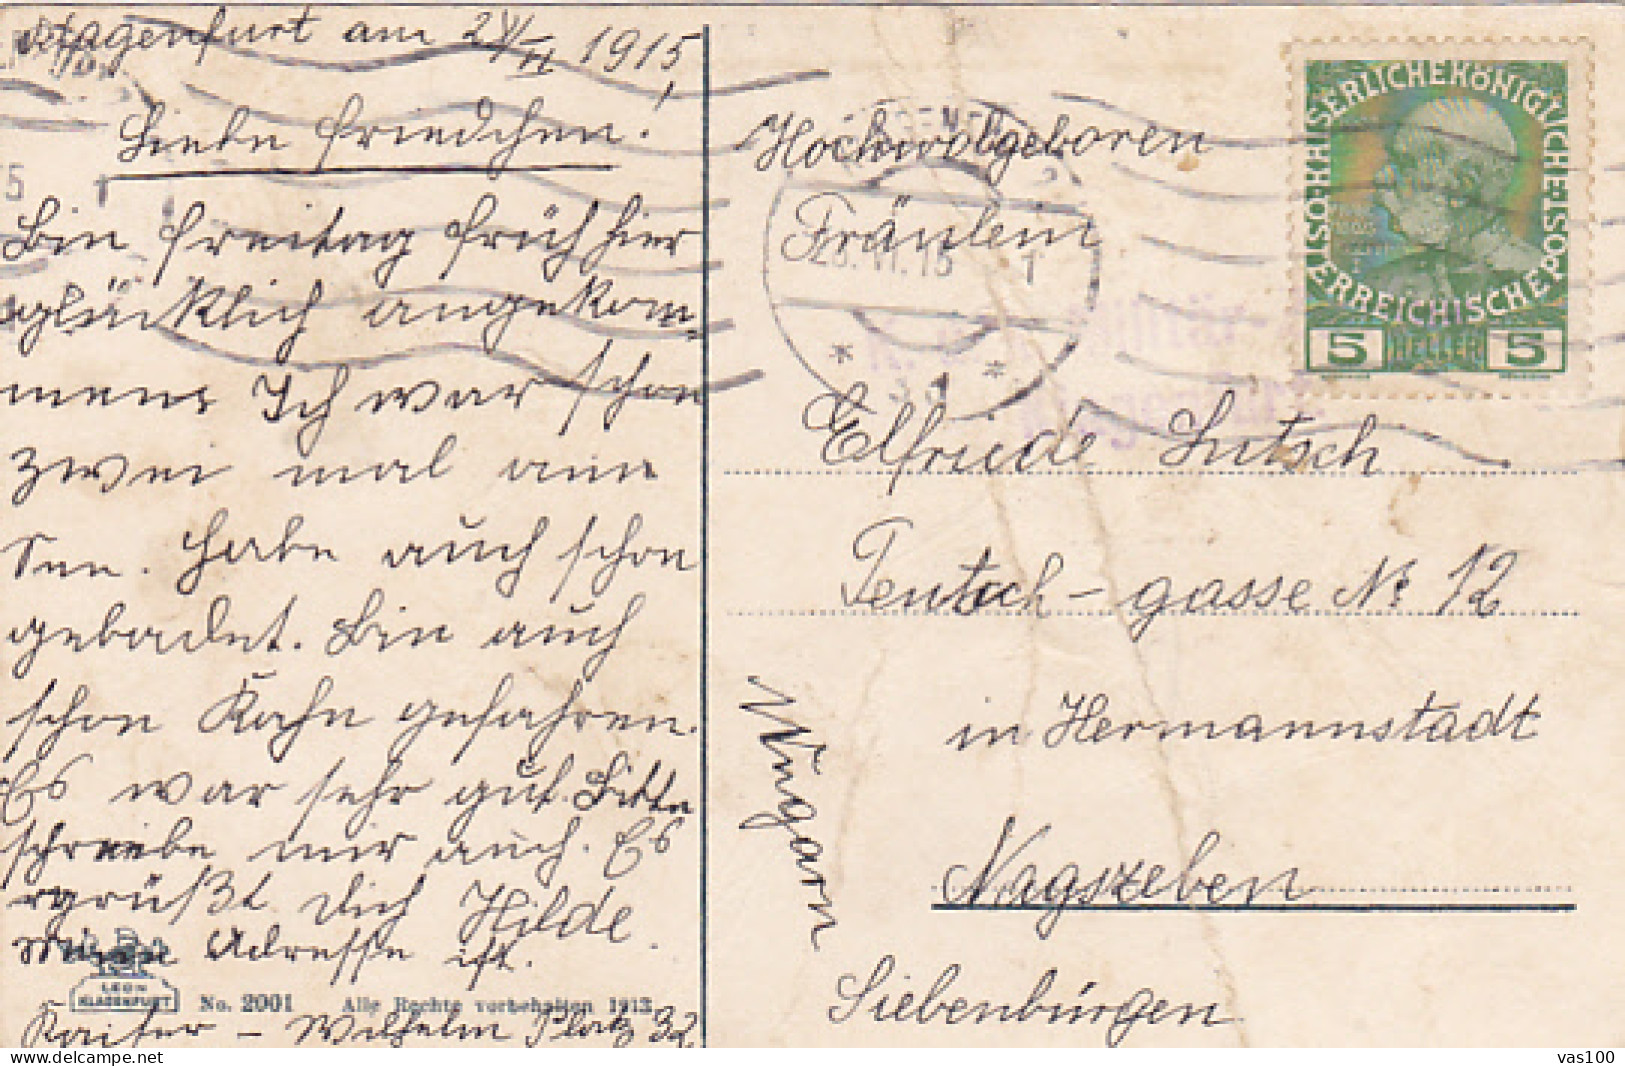 Klagenfurt am 2 V/II 1915,
Liebe Friedchen!
Bin Freitag früh hier
glücklich angekom-
men. Ich war schon
zwei mal am
See. Habe auch schon
gebadet. Bin auch
schon Kahn gefahren.
Es war sehr gut. Bitte
schreibe mir auch. Es
grüßt dich Hilde.
Meine Adresse ist.
LEON
KLAGENFURT
No. 2001 Alle Rechte vorbehalten 1913
Kaiser - Wilhelm Platz 32
Hochwolgeboren
Fräulein
Elfriede Lutsch
Teutsch-gasse No 12
in Hermannstadt
Nagszeben
Siebenbürgen
Ungarn
KAISERLICHE KÖNIGLICHE
ÖSTERREICHISCHE POST
5 HELLER 5
Militär-
1
vas100